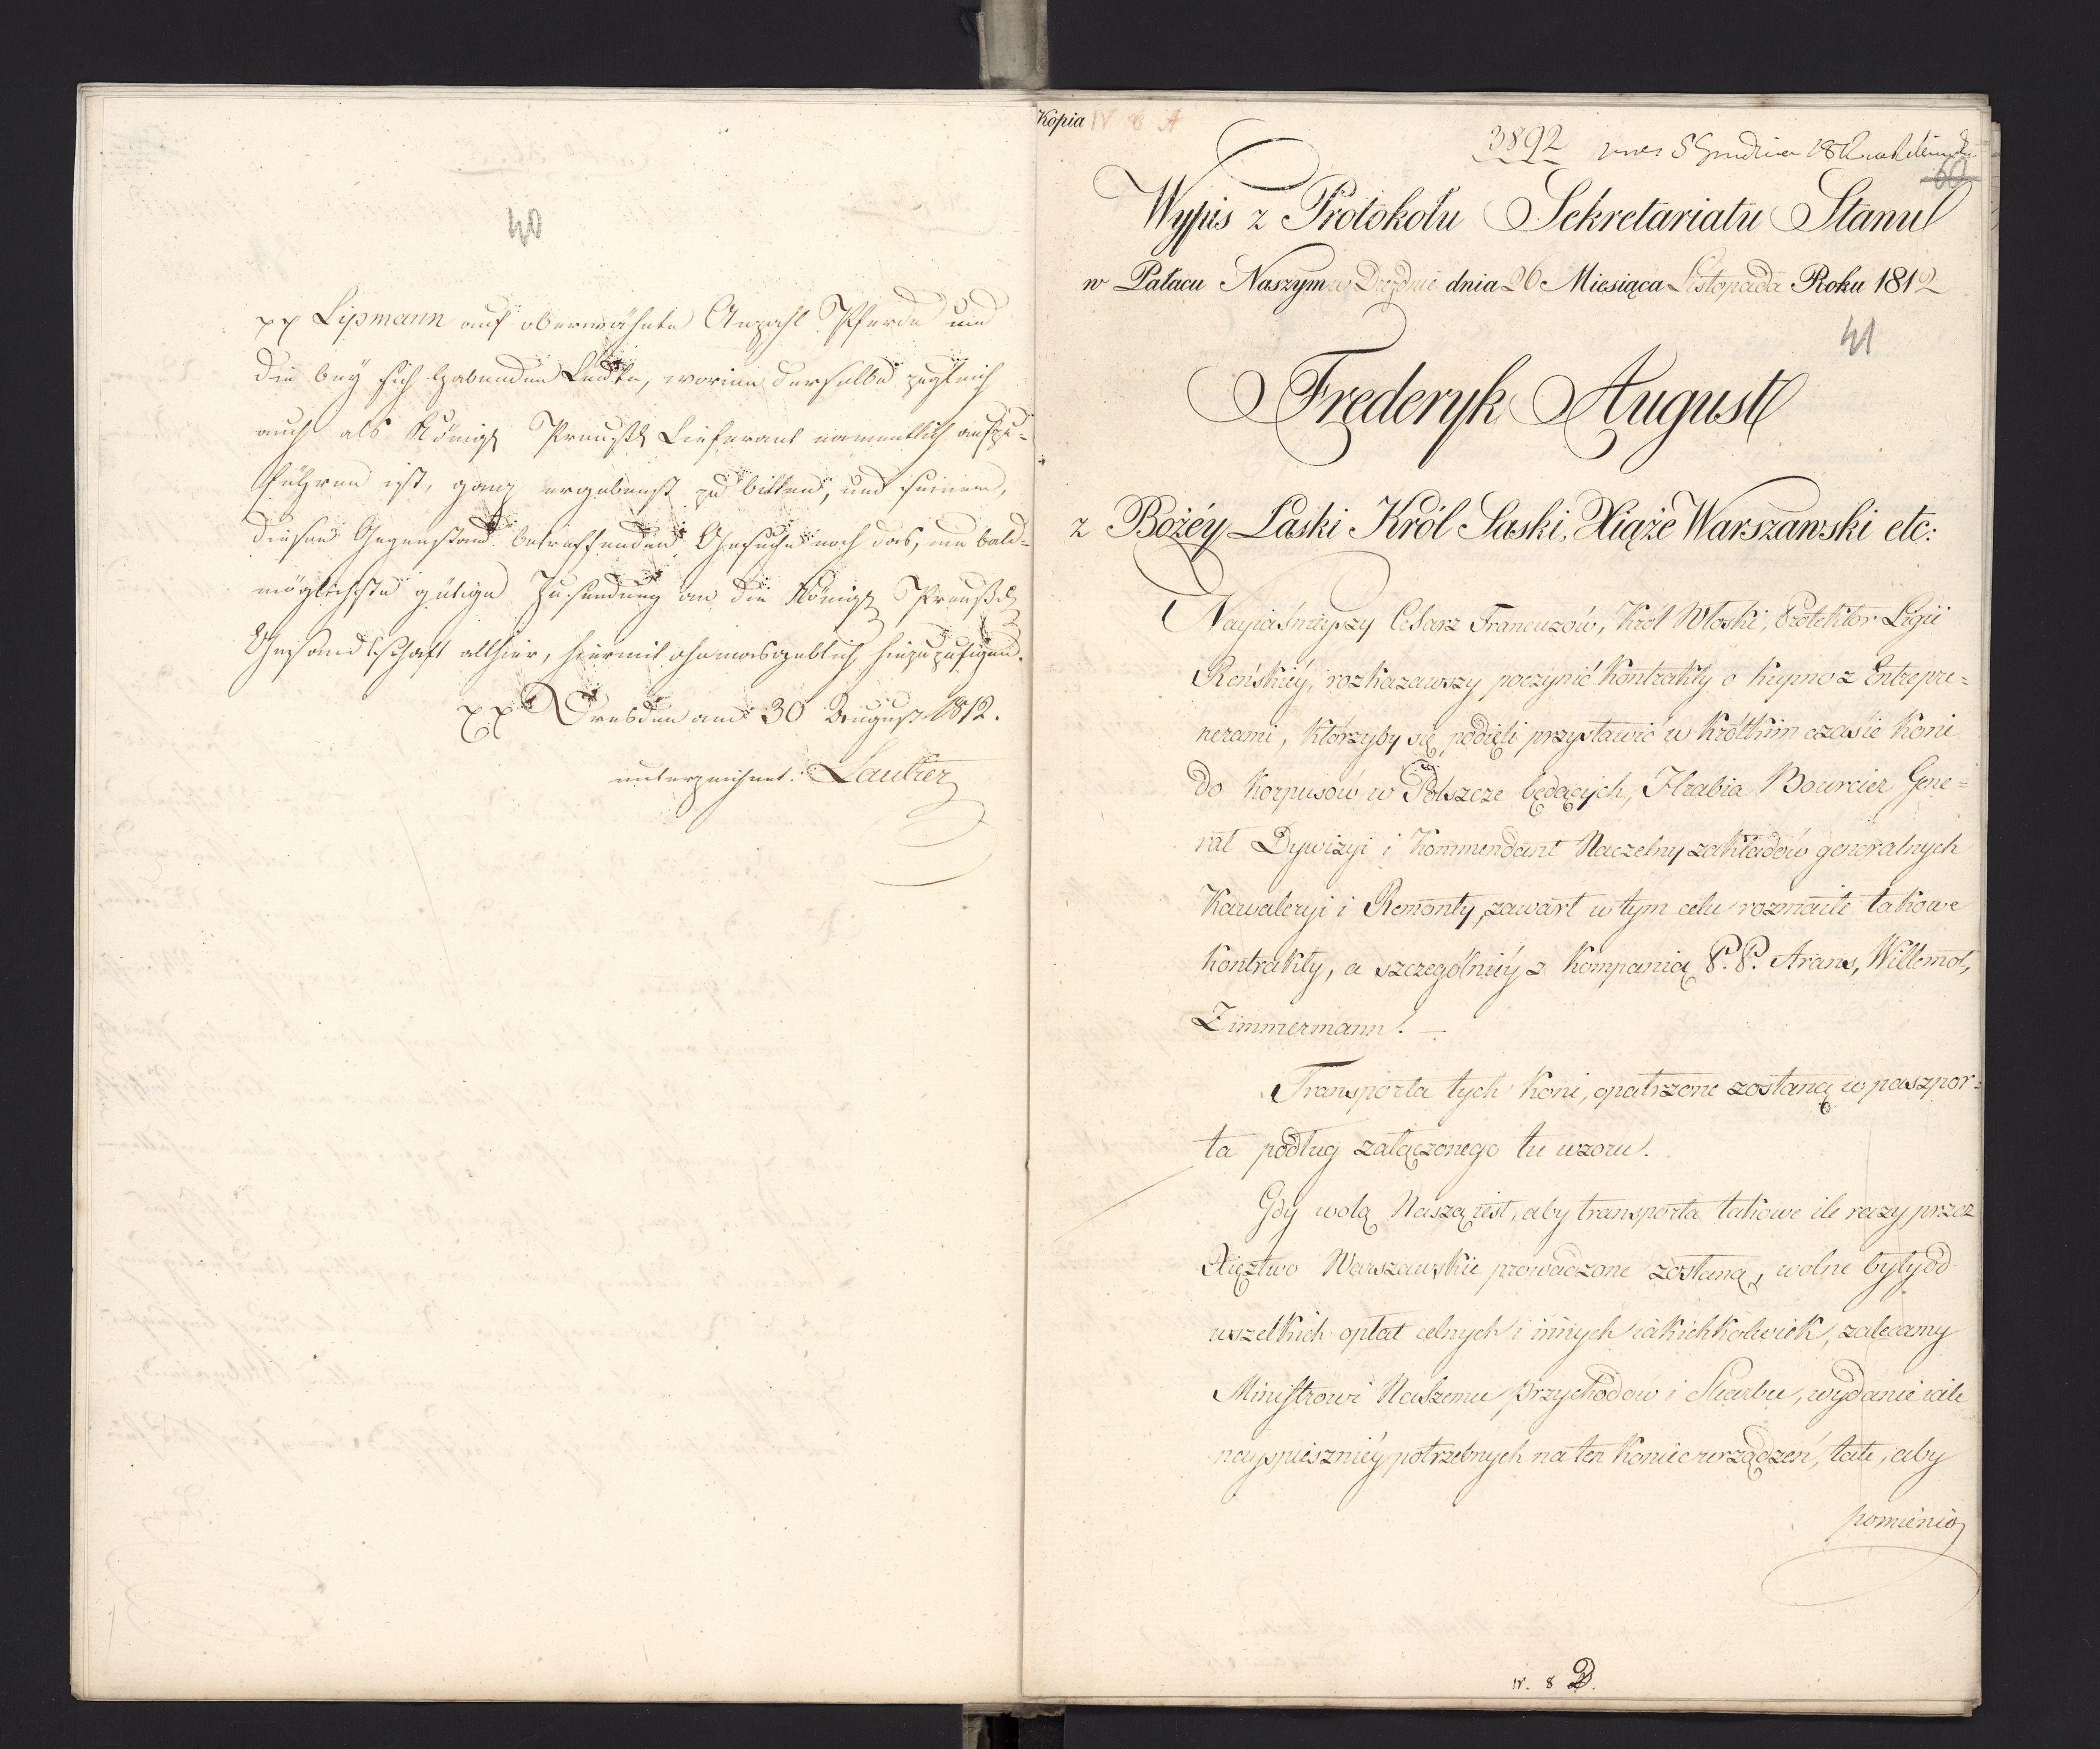 40
pp Lipmann auf oberwähnte Anzahl Pferde und
die bey sich habenden Leute, worinn derselbe zugleich
auch als Königl Preußl Lieferant namentlich aufzu-
führen ist, ganz ergebenst zu bitten, und seinem,
diesen Gegenstand betreffenden Gesuche noch das, um bald-
möglichste gütige Zusendung an die Königl Preußl
Gesandtschaft allhier, hiermit ohnmasgeblich hinzuzufügen.
pp Dresden am 30 August 1812.
unterzeichnet: Lautier
Kopia IV 8 A
3892 5 Grudnia 1812
60
Wypis z Protokołu Sekretariatu Stanu
w Pałacu Naszym w Dreźdnie dnia 26 Miesiąca Listopada Roku 1812
41
Frederyk August
z Bożéy Łaski Król Saski, Xiąże Warszawski etc:
Nayiaśnieyszy Cesarz Francuzów, Król Włoski, Protektor Ligii
Reńskiéy, rozkazawszy poczynić Kontrakty o kupno z Entrepre-
nerami, którzyby się podięli przystawić w krótkim czasie koni
do korpusów w Polszcze będących, Hrabia Bourcier Gene-
rał Dywizyi i Kommendant Naczelny zakładów generalnych
Kawaleryi i Remonty, zawarł w tym celu rozmaite takowe
kontrakty, a szczególniéy z kompanią P.P. Arans, Willemot,
Zimmermann. —
Transporta tych koni, opatrzone zostaną w paszpor-
ta podług załączonego tu wzoru.
Gdy wolą Naszą iest, aby transporta takowe ile razy przez
Xięztwo Warszawskie prowadzone zostaną, wolne były od
wszelkich opłat celnych i innych iakichkolwiek, zalecamy
Ministrowi Naszemu Przychodow i Skarbu, wydanie iak
nayspieszniéy potrzebnych na ten koniec urządzeń, tak, aby
pomienio
IV. 8 B.